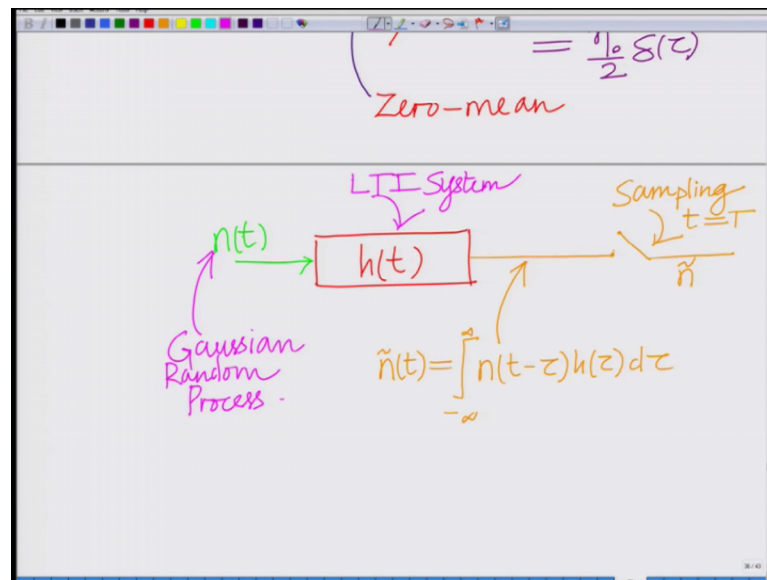 = η₀/2 δ(τ)
Zero-mean
LTI System
Sampling
t=T
n(t)
h(t)
ñ
Gaussian
Random
Process.
ñ(t) = ∫_{-∞}^{∞} n(t-τ)h(τ)dτ